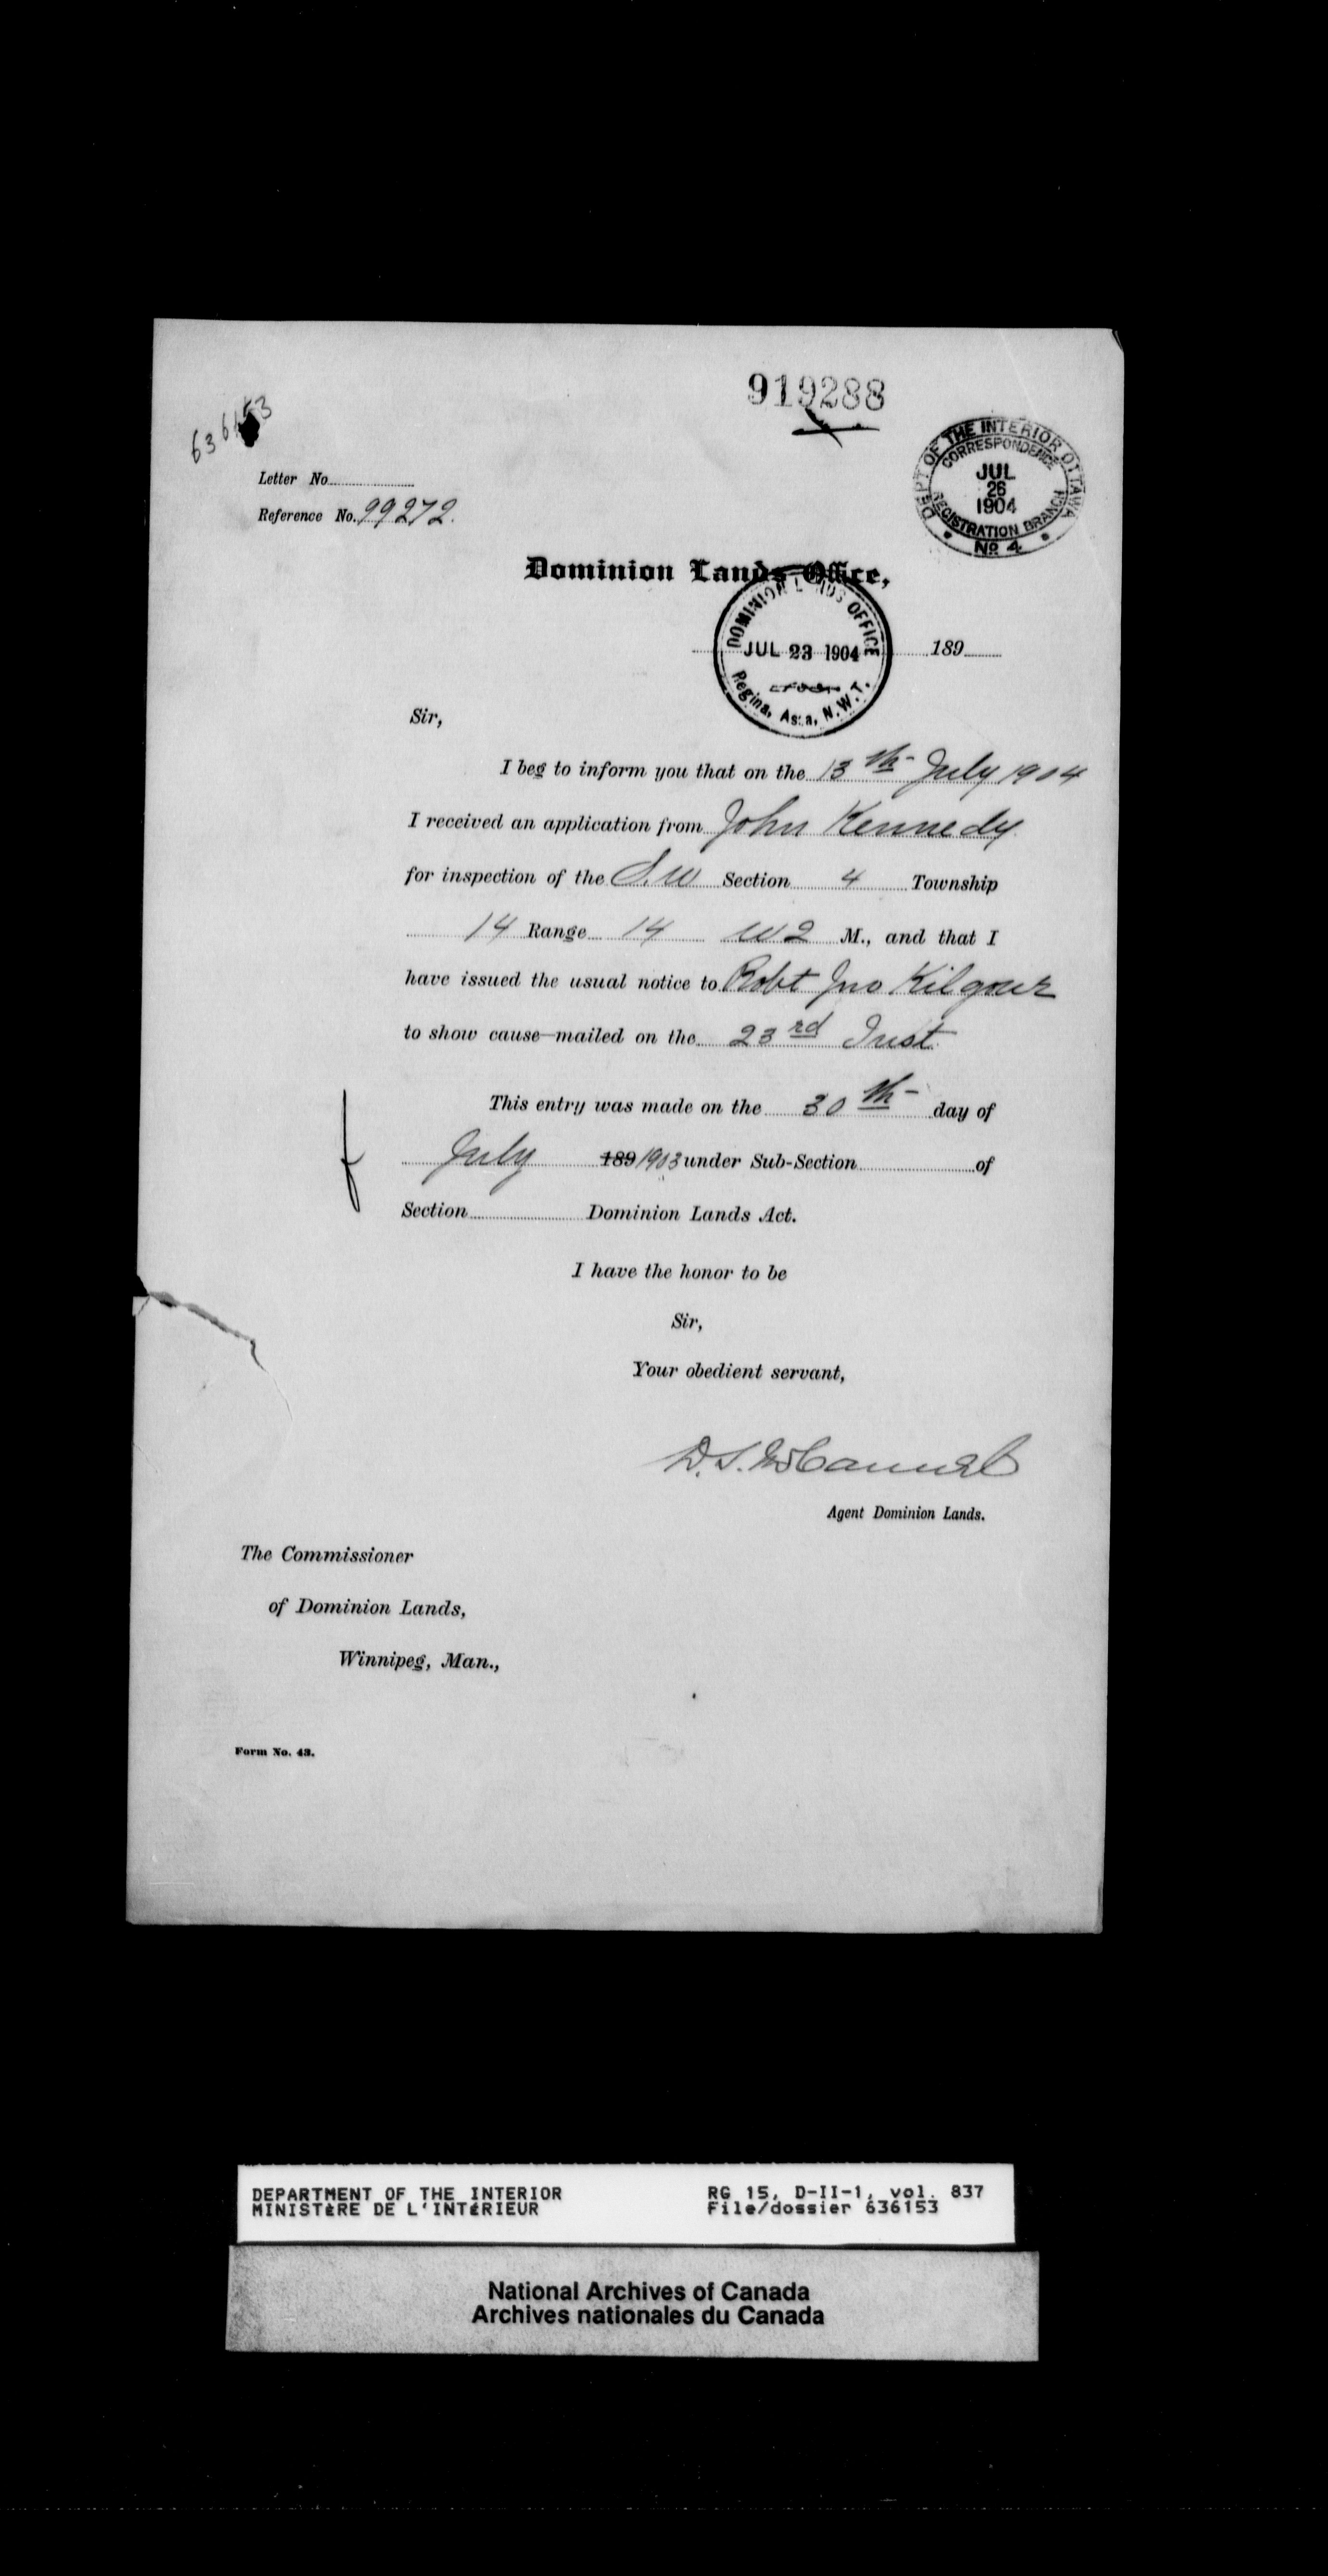 919288
636153
DEPT OF THE INTERIOR OTTAWA
CORRESPONDENCE
JUL
26
1904
REGISTRATION BRANCH
No 4
Letter No.
Reference No. 99272.
Dominion Lands Office,
DOMINION LANDS OFFICE
JUL 23 1904
Regina, Assa, N.W.T.
189
Sir,
I beg to inform you that on the 13th July 1904
I received an application from John Kennedy
for inspection of the S.W Section 4 Township
14 Range 14 W2 M., and that I
have issued the usual notice to Robt Jno Kilgour
to show cause—mailed on the 23rd Inst.
This entry was made on the 30th day of
July 189 1903 under Sub-Section of
Section Dominion Lands Act.
I have the honor to be
Sir,
Your obedient servant,
D.S. McCannel
Agent Dominion Lands.
The Commissioner
of Dominion Lands,
Winnipeg, Man.,
Form No. 43.
DEPARTMENT OF THE INTERIOR RG 15, D-II-1, vol. 837
MINISTèRE DE L'INTéRIEUR File/dossier 636153
National Archives of Canada
Archives nationales du Canada